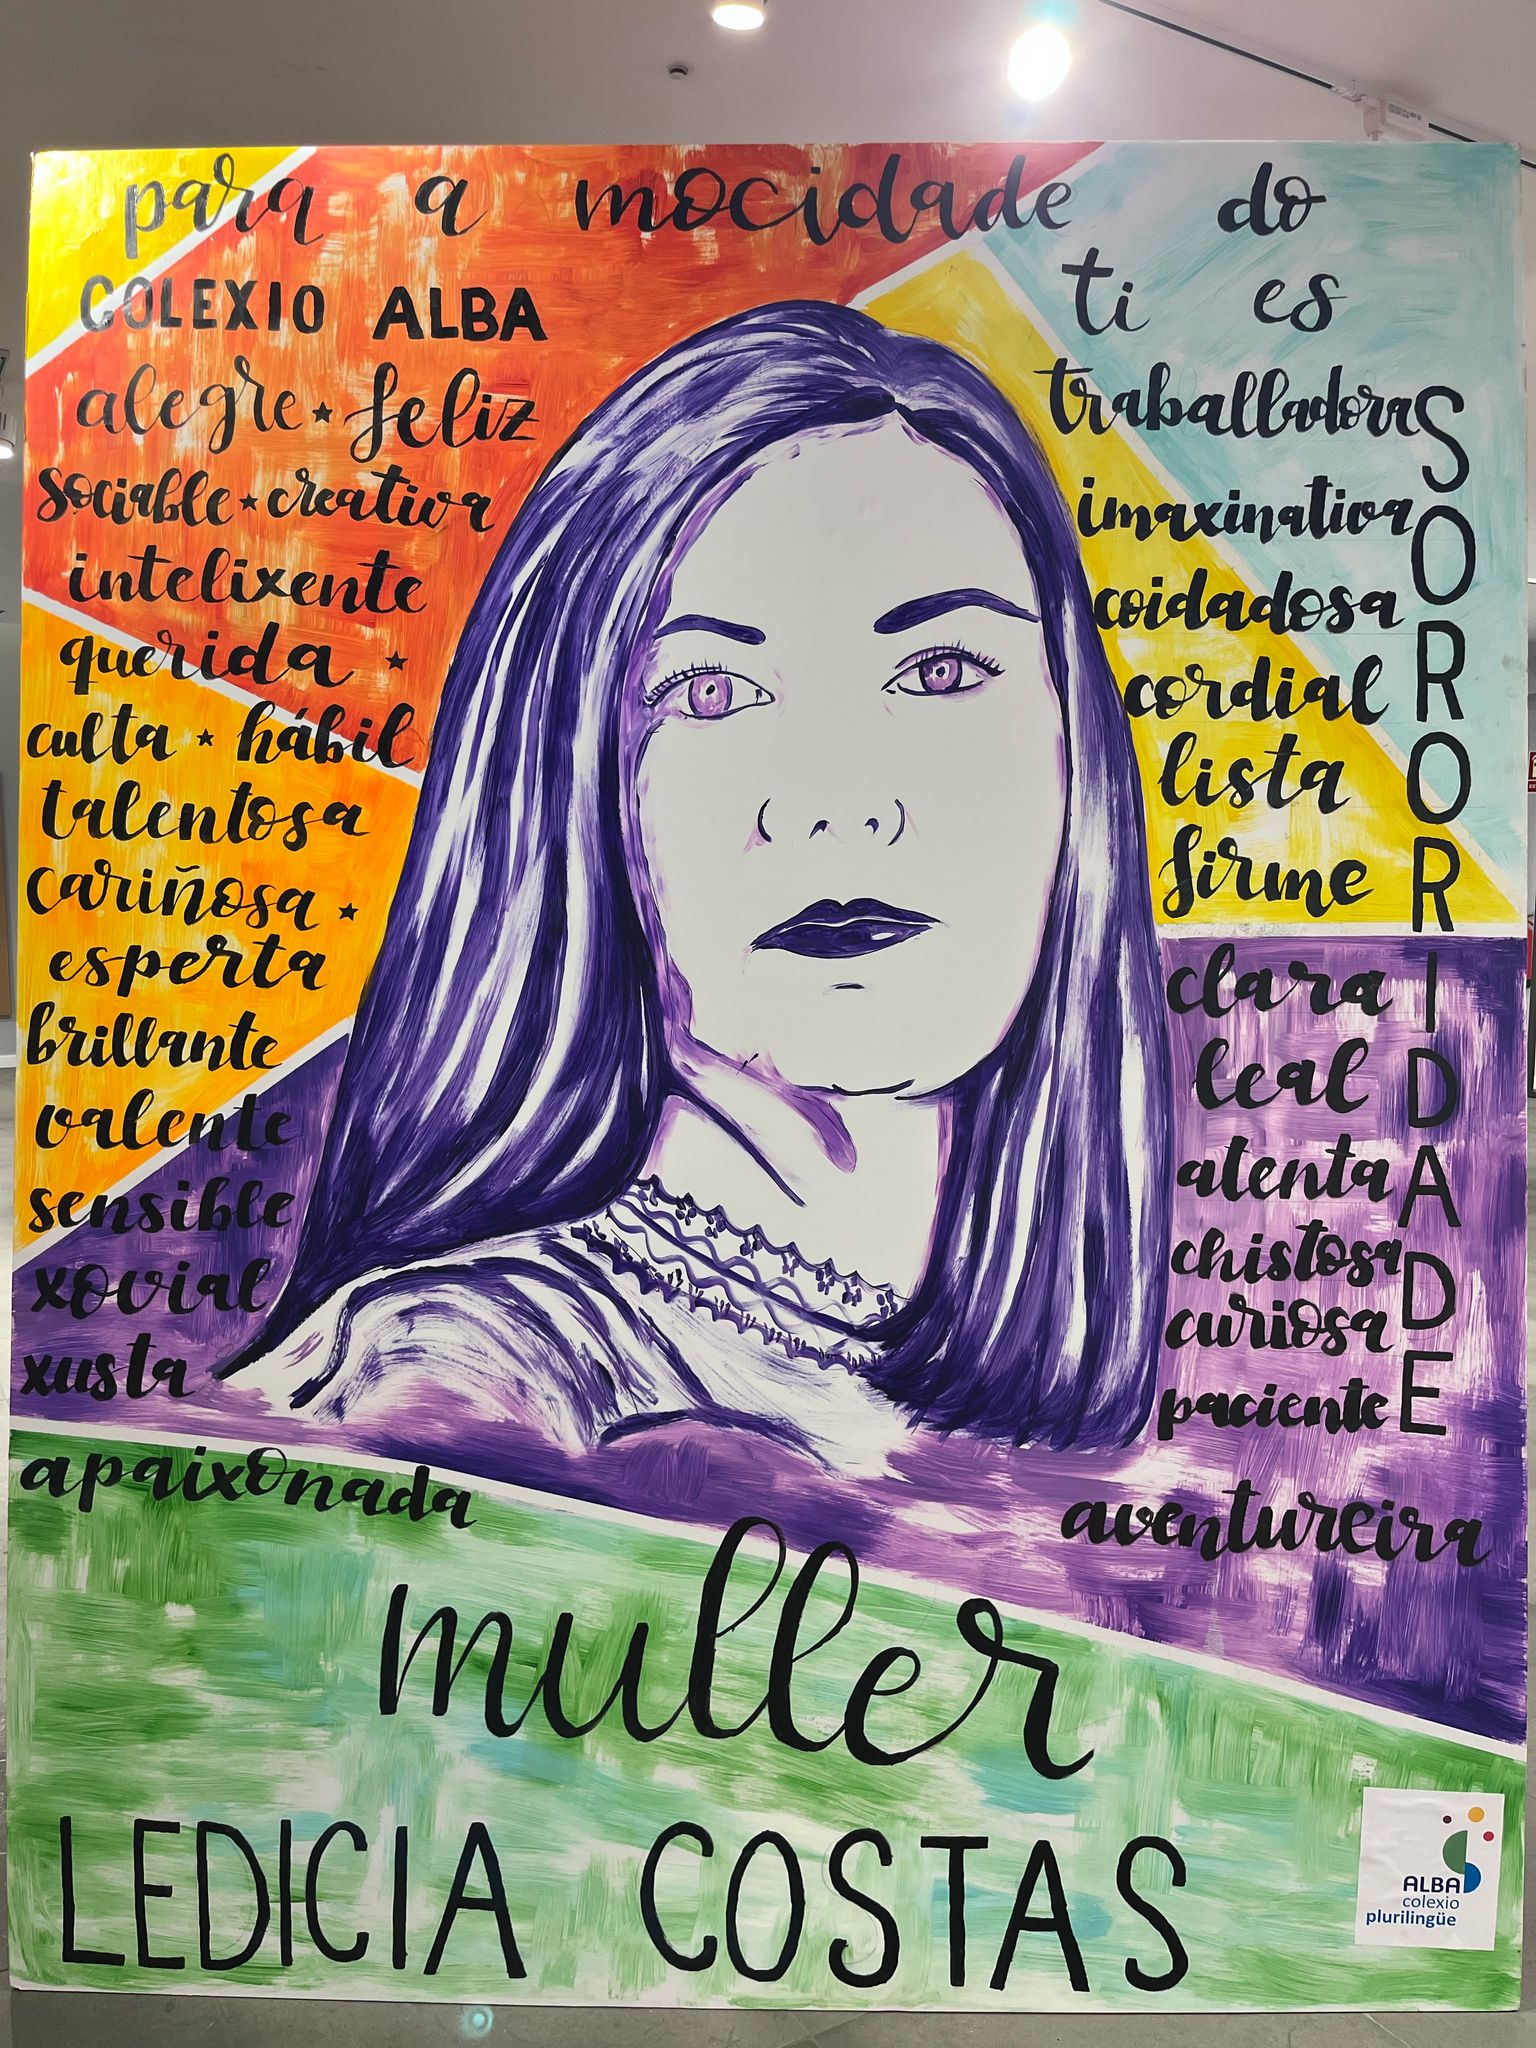 para a mocidade do
COLEXIO ALBA
ti es
alegre ★ feliz
sociable ★ creativa
intelixente
querida ★
culta ★ hábil
talentosa
cariñosa ★
esperta
brillante
valente
sensible
xovial
xusta
apaixonada
traballadora
imaxinativa
coidadosa
cordial
lista
firme
clara
leal
atenta
chistosa
curiosa
paciente
aventureira
SORORIDADE
muller
LEDICIA COSTAS
ALBA
colexio
plurilingüe